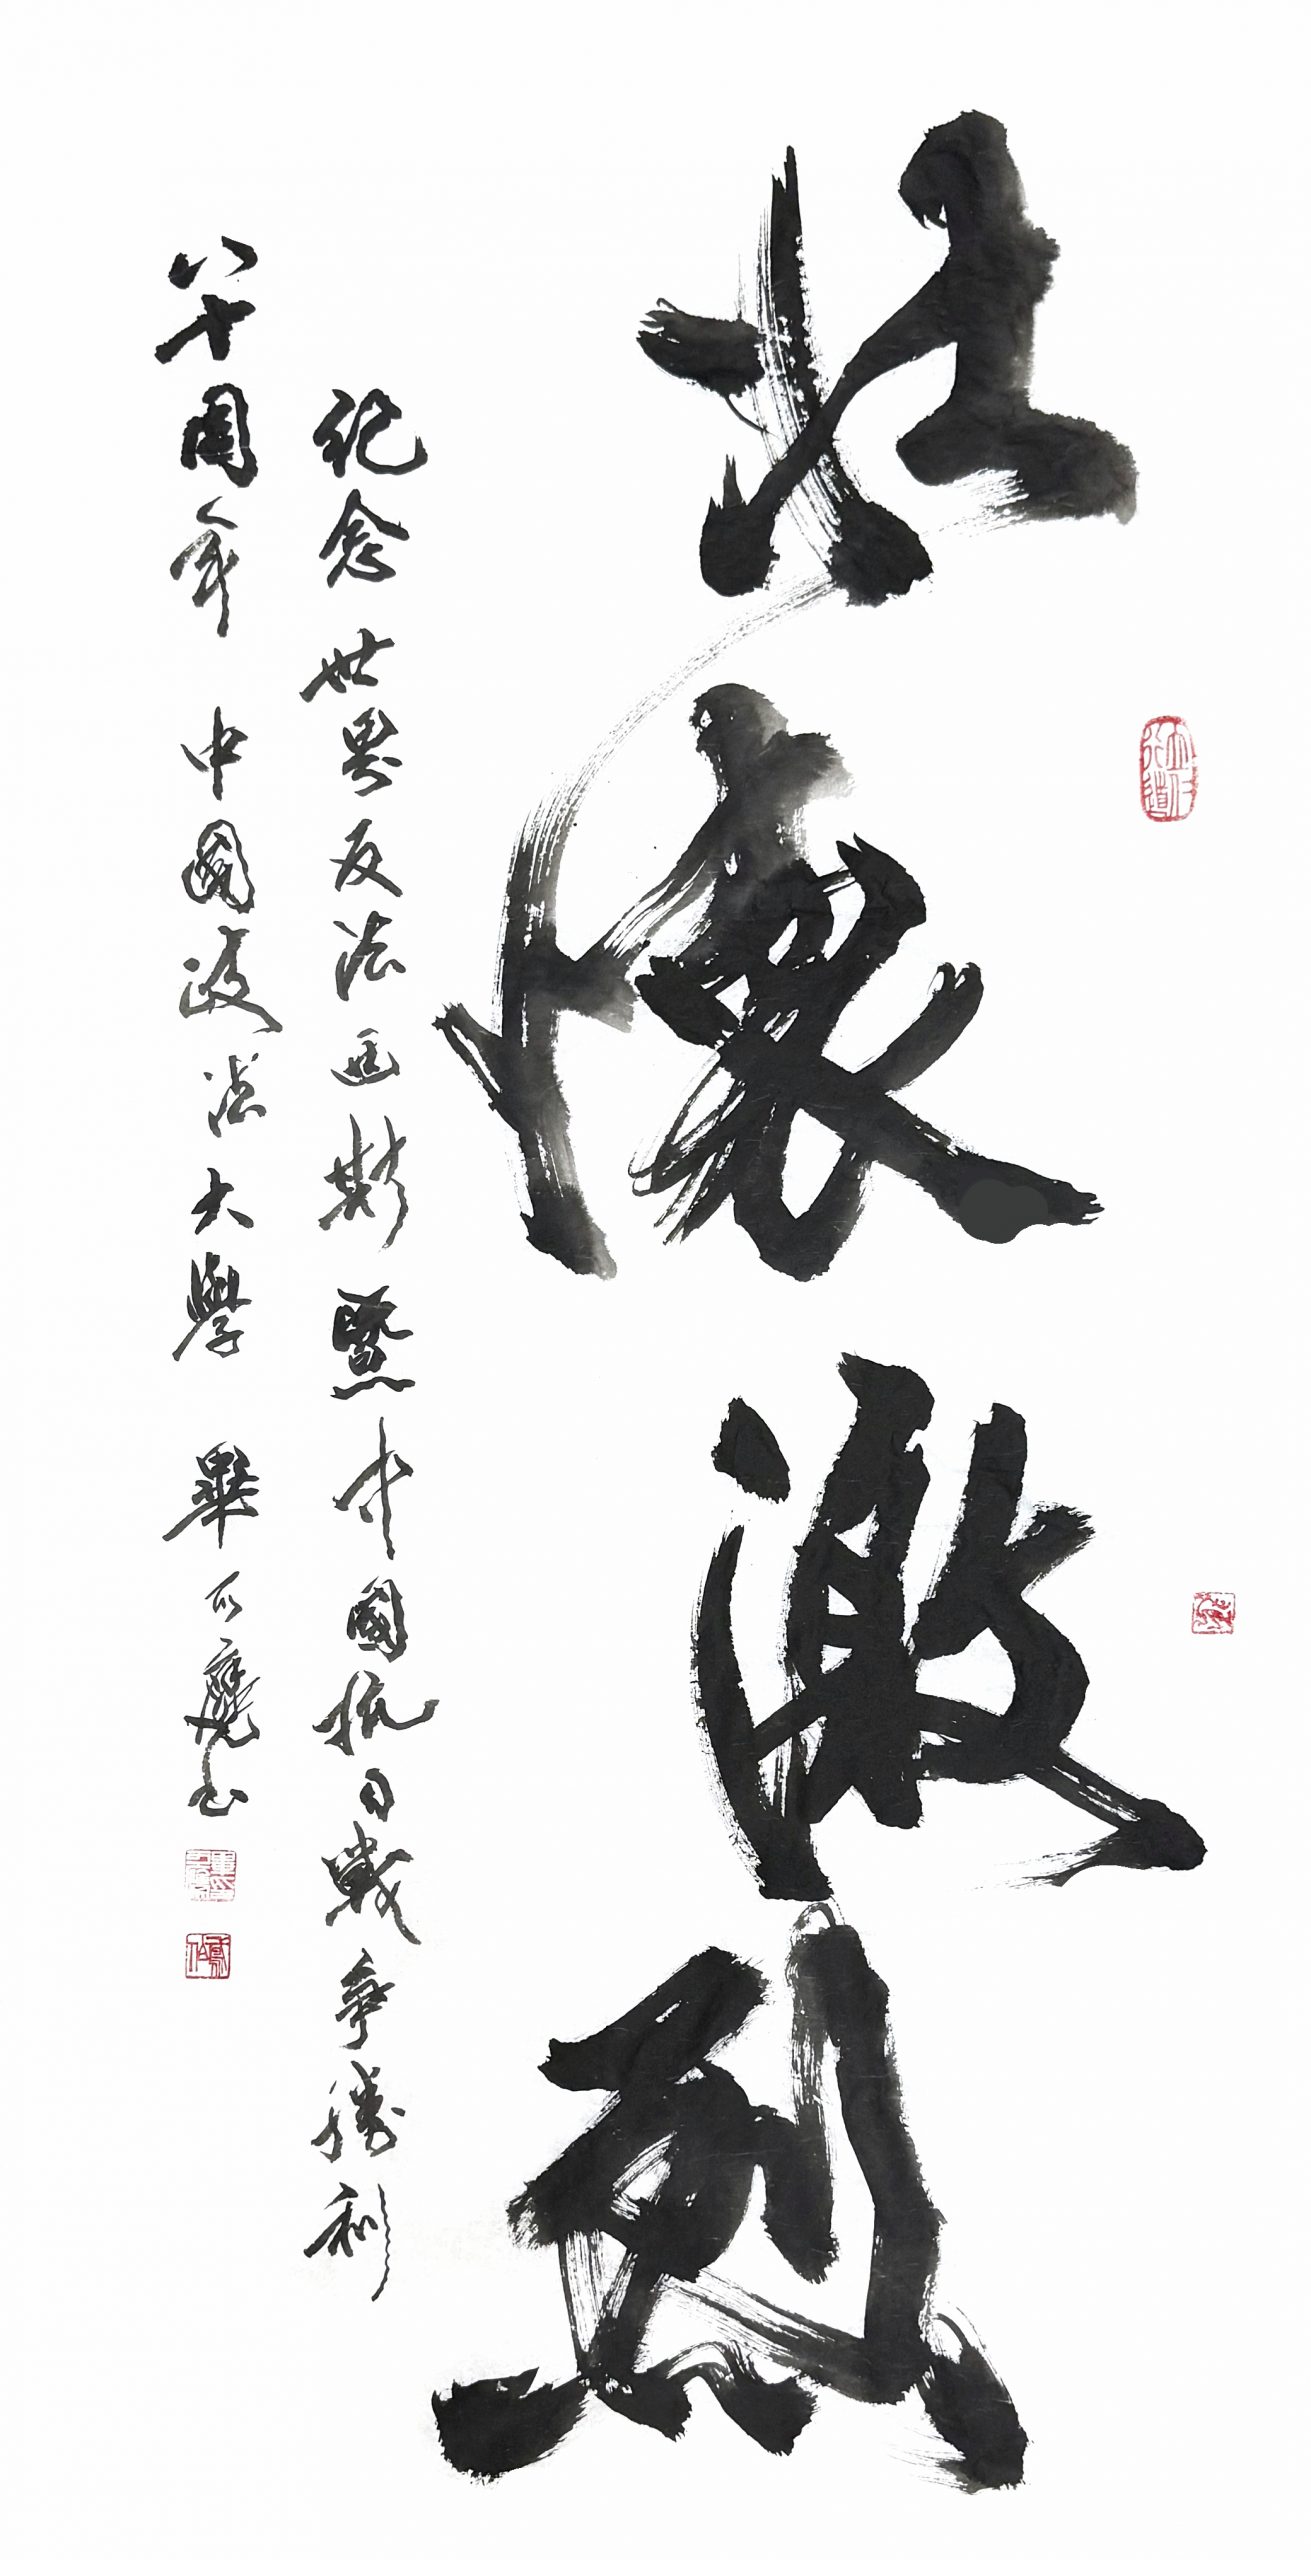 壮怀激烈
纪念世界反法西斯暨中國抗日戰争勝利
八十周年 中國政法大學 畢 书